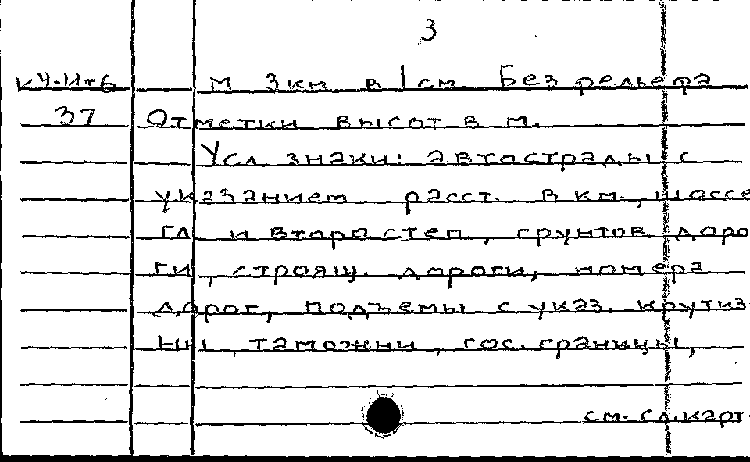 3
КУ-И+6 м 3км в 1см. Без рельефа
37 Отметки высот в м.
Усл знаки: автострады с
указанием расст. в км, шоссе
гл и второстеп, грунтов. доро
ги, строящ. дороги, номера
дорог, подъемы с указ. крутиз
ны, таможни, гос. границы,
см. сл. карт